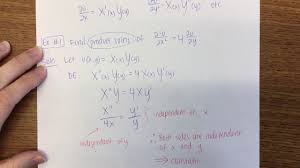 ∂u/∂x = X'(x) Y(y)   ∂u²/∂x² = X''(x) Y(y) etc
Ex #1 Find product solns of ∂²u/∂x² = 4 ∂u/∂y
Soln. Let u(x,y) = X(x) Y(y)
DE: X''(x) Y(y) = 4 X(x) Y'(y)
X''Y = 4XY'
X''/4X = Y'/Y independent of x
independent of y
∴ Both sides are independent
of x and y
⇒ constant